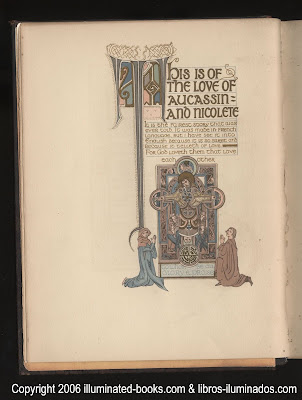 THIS IS OF
THE LOVE OF
AUCASSIN
AND NICOLETE
It is the fairest story that was
ever told. It was made in French
language, but I have set it into
English because it is so sweet and
because it telleth of love.
For God loveth them that love
each other
Copyright 2006 illuminated-books.com & libros-iluminados.com